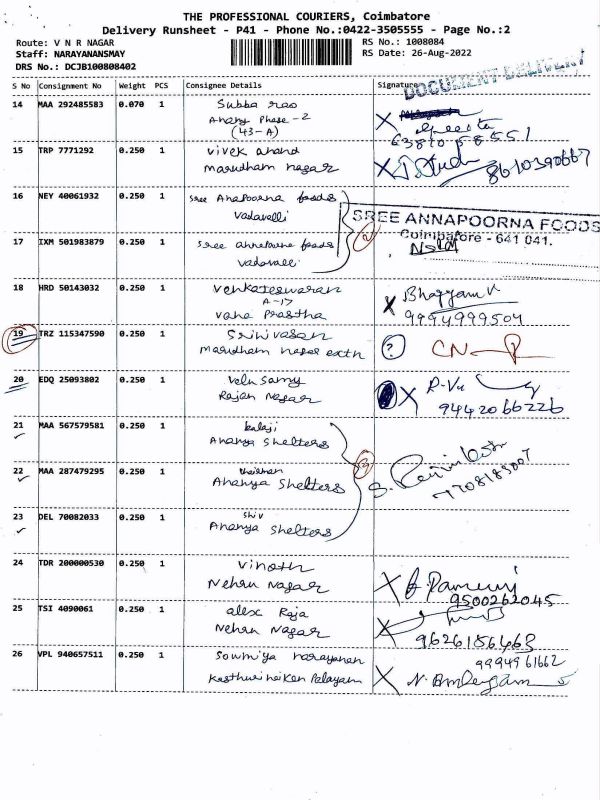 THE PROFESSIONAL COURIERS, Coimbatore
Delivery Runsheet - P41 - Phone No.:0422-3505555 - Page No.:2
Route: V N R NAGAR
Staff: NARAYANANSMAY
DRS No.: DCJB100808402
RS No.: 1008084
RS Date: 26-Aug-2022
DOCUMENT DELIVERY
S No Consignment No Weight PCS Consignee Details Signature
14 MAA 292485583 0.070 1 Subba rao
Phase - 2
(43-A)
6381058551
15 TRP 7771292 0.250 1 vivek anand
marudham nagar
8610390667
16 NEY 40061932 0.250 1 Sree Annapoorna foods
vadavelli
SREE ANNAPOORNA FOODS
Coimbatore - 641 041.
17 IXM 501983879 0.250 1 Sree foods
vadavelli
2
18 HRD 50143032 0.250 1 venkateswaran
A-17
vana Prastha
X Bhagyam V
9994999504
19 TRZ 115347590 0.250 1 Srinivasan
marudham nagar extn
?
20 EDQ 25093802 0.250 1 velusamy
Rajan Nagar
X
9442066226
21 MAA 567579581 0.250 1 balaji
Ananya Shelters
22 MAA 287479295 0.250 1
Ananya Shelters
3
7708185007
23 DEL 70082033 0.250 1 Shiv
Ananya Shelters
24 TDR 200000530 0.250 1 vinoth
Nehru Nagar
X
9500262045
25 TSI 4090061 0.250 1 alex Raja
Nehru Nagar
X
9626186463
26 VPL 940657511 0.250 1 Sowmiya narayanan
9994961662
X